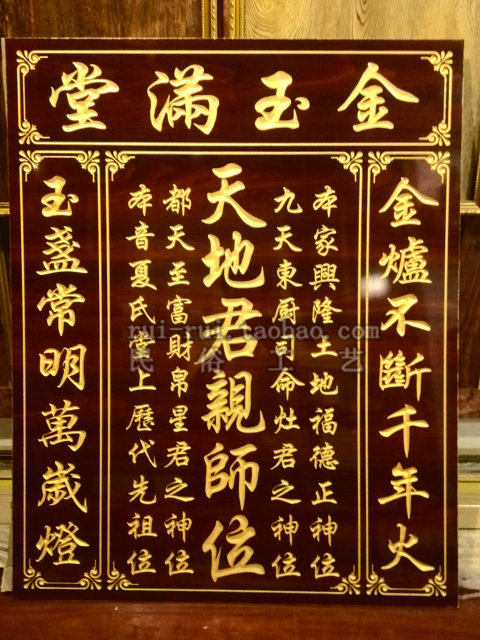 金玉滿堂
金爐不斷千年火
本家興隆土地福德正神位
九天東厨司命灶君之神位
天地君親師位
都天至富財帛星君之神位
本音夏氏堂上歷代先祖位
玉盞常明萬歲燈
rui-rui.taobao.com
民俗工艺